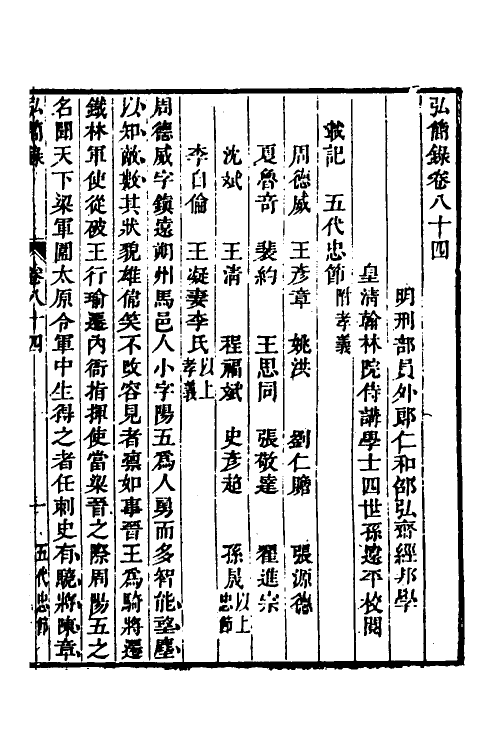 弘簡錄卷八十四
明刑部員外郎仁和邵弘齋經邦學
皇清翰林院侍講學士四世孫遠平校閱
載記　五代忠節附孝義
周德威　王彥章　姚洪　劉仁贍　張源德
夏魯奇　裴約　王思同　張敬達　翟進宗
沈斌　王清　程福斌　史彥超　孫晟以上忠節
李自倫　王凝妻李氏以上孝義
周德威字鎮遠朔州馬邑人小字陽五爲人勇而多智能望塵
以知敵數其狀貌雄偉笑不改容見者凜如事晉王爲騎將遷
鐵林軍使從破王行瑜遷內衙指揮使當梁晉之際周陽五之
名聞天下梁軍圍太原令軍中生得之者任刺史有驍將陳章
弘簡錄　卷八十四　十　五代忠節